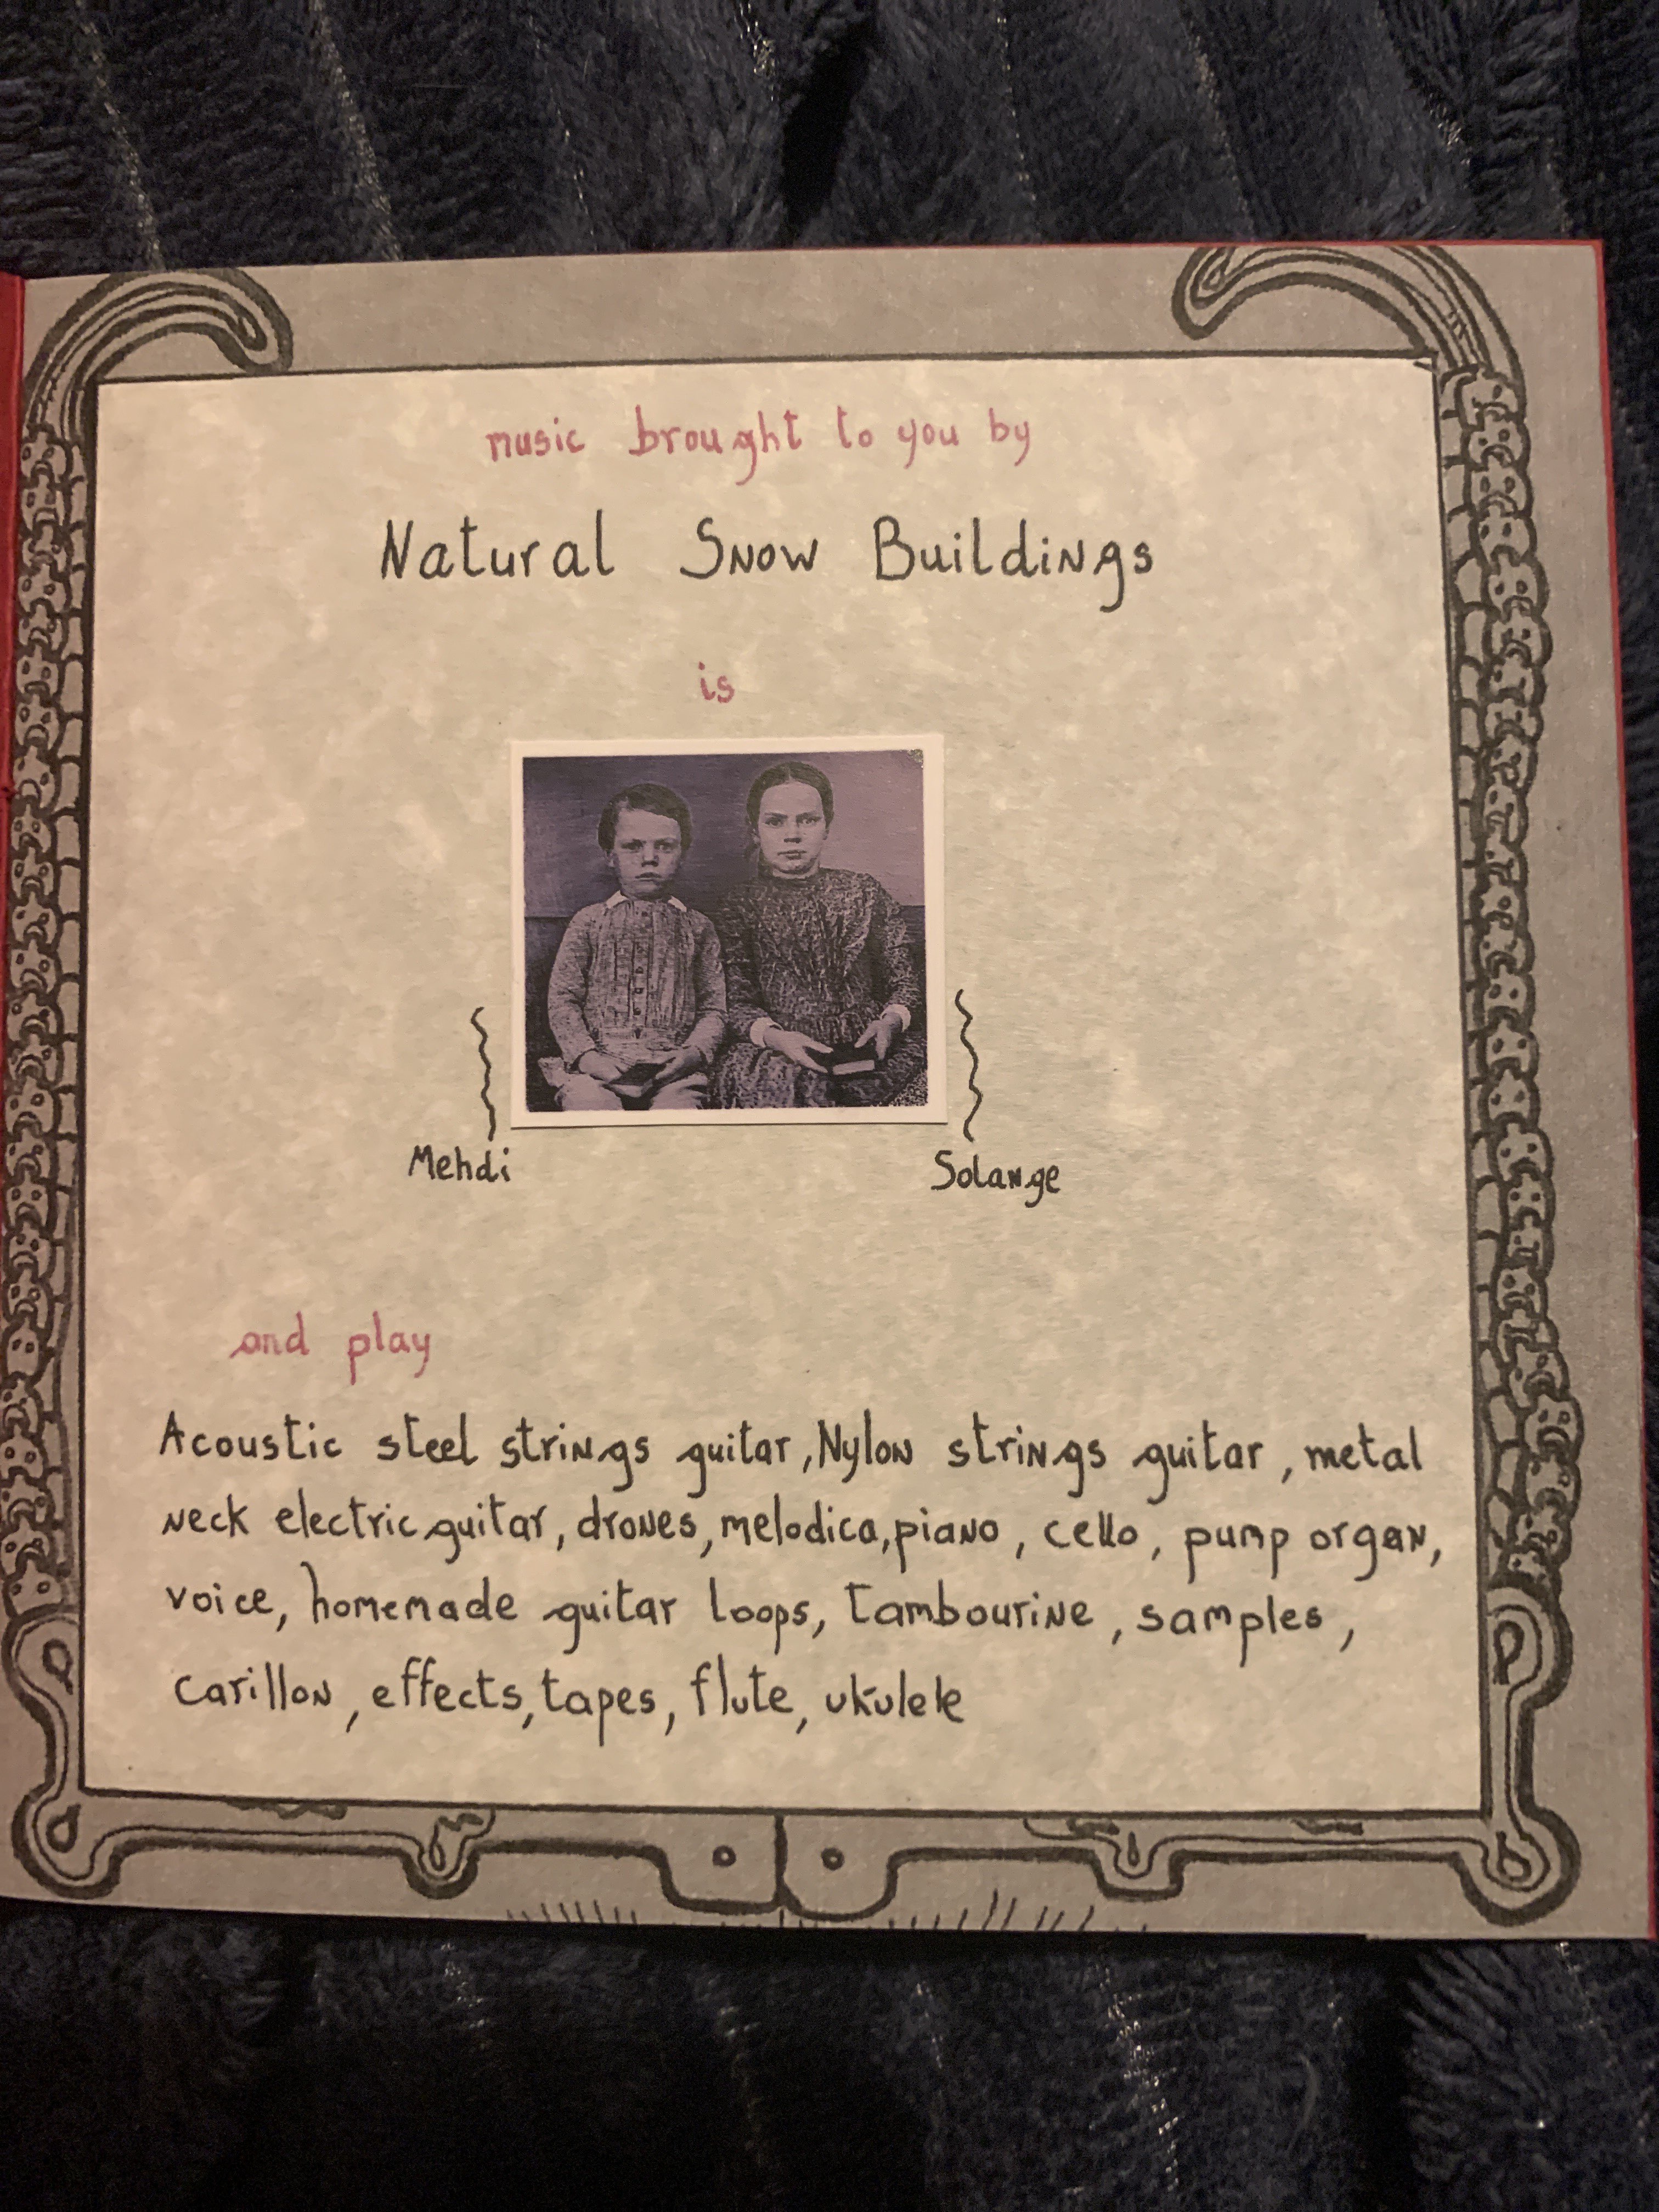 music brought to you by
Natural Snow Buildings
is
Mehdi
Solange
and play
Acoustic steel strings guitar, Nylon strings guitar, metal
neck electric guitar, drones, melodica, piano, cello, pump organ,
voice, homemade guitar loops, tambourine, samples,
carillon, effects, tapes, flute, ukulele